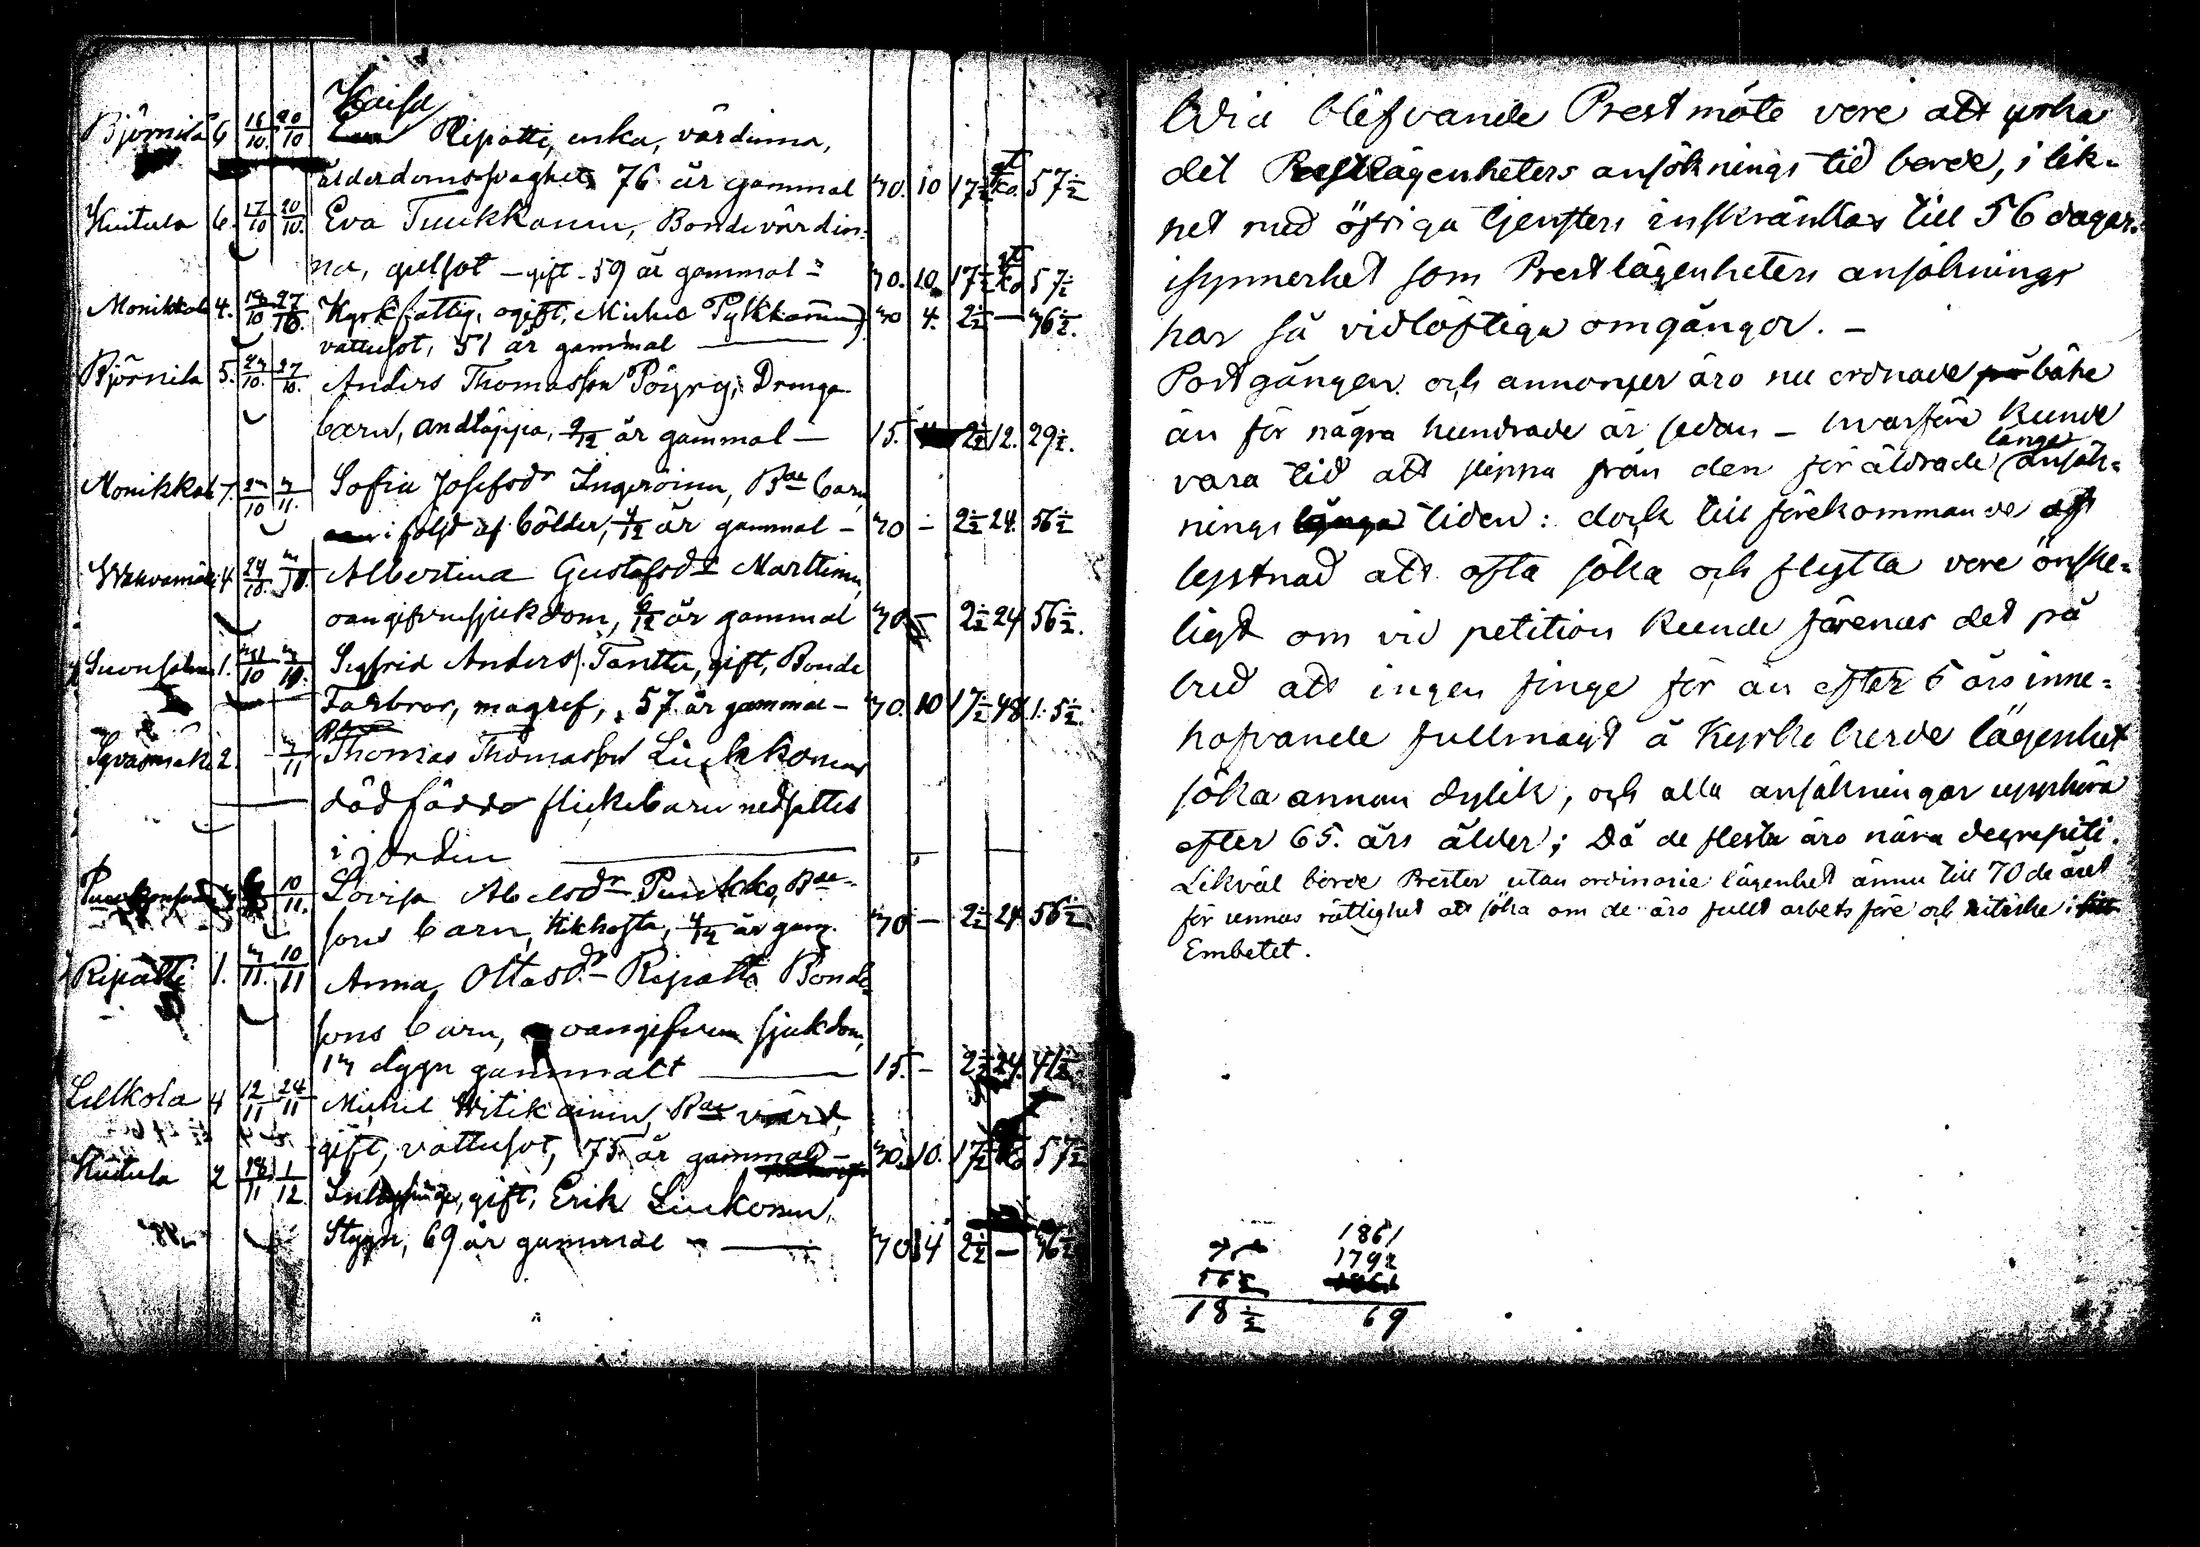 Kaisa
Björnilä 6 16/10 20/10 Ripatti, enka, värdinna,
ålderdomssvaghet, 76 år gammal 30. 10 17½ ko. 57½
Kuitula 6. 17/10 20/10. Eva Tuukkanen, Bondevärdin-
na, gulsot – gift – 59 år gammal – 30. 10 17½ ko 57½
Monikkala 4. 19/10 27/10. Kyrkfattig, ogift, Michel Pylkkänen, 30 4. 2½ — 36½.
vattusot, 51 år gammal —
Björnilä 5. 27/10. Anders Thomasson Pöyry, Drengs
barn, andtäppa, 9/12 år gammal — 15. 2½ 12. 29½.
Monikkala 7. 3/11. Sofia Josefsdr Ingeroinen, Bde barn,
i följd af bölder, 4/12 år gammal – 30 – 2½ 24. 56½
4 24/10. Albertina Gustafsdr Marttinen,
oangifven sjukdom, år gammal 30. – 2½ 24 56½.
1. Sigfrid Anders. Tanttu, gift, Bonde
Farbror, magref, 57 år gammal – 30. 10 17½ 48. 1. 5½.
2. 3/11 Thomas Thomasson Liukkonens
dödfödda flickebarn nedsattes
i jorden —
10/11. Lovisa Abelsdr Punkka, Bde-
sons barn, kikhosta, 4/12 år gam. 30 – 2½ 24 56½
Ripatti 1. 3/11. 10/11 Anna Ottosdr Ripatti Bonde-
sons barn, oangifven sjukdom,
13 dygn gammalt — 15. – 2½ 24. 41½
Lellkola 4 12/11 24/11 Michel Hitikainen, Bde värd,
gift, vattusot, 75 år gammal – 30. 10. 17½ ko 57½
Kuitula 2 18/11 1/12 gift, Erik Liukonen,
Stygn, 69 år gammal – 30 4 2½ — 36½
Wid blifvande Prestmöte vore att yrka
det Prestlägenheters ansöknings tid borde, i lik-
het med öfriga tjensters inskränkas till 56 dagar.
isynnerhet som Prestlägenheters ansöknings
har så vidlöftiga omgångar. –
Postgången och annonser äro nu ordnade bätre
än för några hundrade år sedan – hvarföre kunde
långa
vara tid att pinna från den föråldrade ansök-
nings tiden: dock till förekommande af
lystnad att ofta söka och flytta vore önske-
ligt om vid petition kunde förenas det på
bud att ingen finge för än efter 5 års inne-
hafvande fullmagt å Kyrkoherde lägenhet
söka annan dylik, och alla ansökningar upphöra
efter 65. års ålder; Då de flesta äro nära decrepiti.
Likväl borde Prester utan ordinarie lägenhet ännu till 70 de året
förunnas rättighet att söka om de äro fullt arbets före och nitiske i
Embetet.
1861
1792
56½
18½ 69